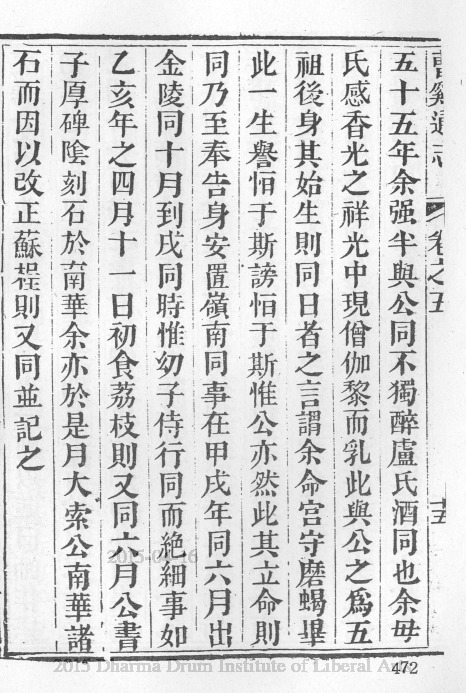 曹溪通志
卷之五
十五
五十五年余强半與公同不獨醉盧氏酒同也余毋
氏感香光之祥光中現僧伽黎而乳此與公之爲五
祖後身其始生則同日者之言謂余命宮守磨蝎畢
此一生譽恒于斯謗恒于斯惟公亦然此其立命則
同乃至奉告身安置嶺南同事在甲戌年同六月出
金陵同十月到戍同時惟幼子侍行同而絶細事如
乙亥年之四月十一日初食荔枝則又同六月公書
子厚碑陰刻石於南華余亦於是月大索公南華諸
石而因以改正蘇程則又同並記之
2015-04-16
2015 Dharma Drum Institute of Liberal Arts
472